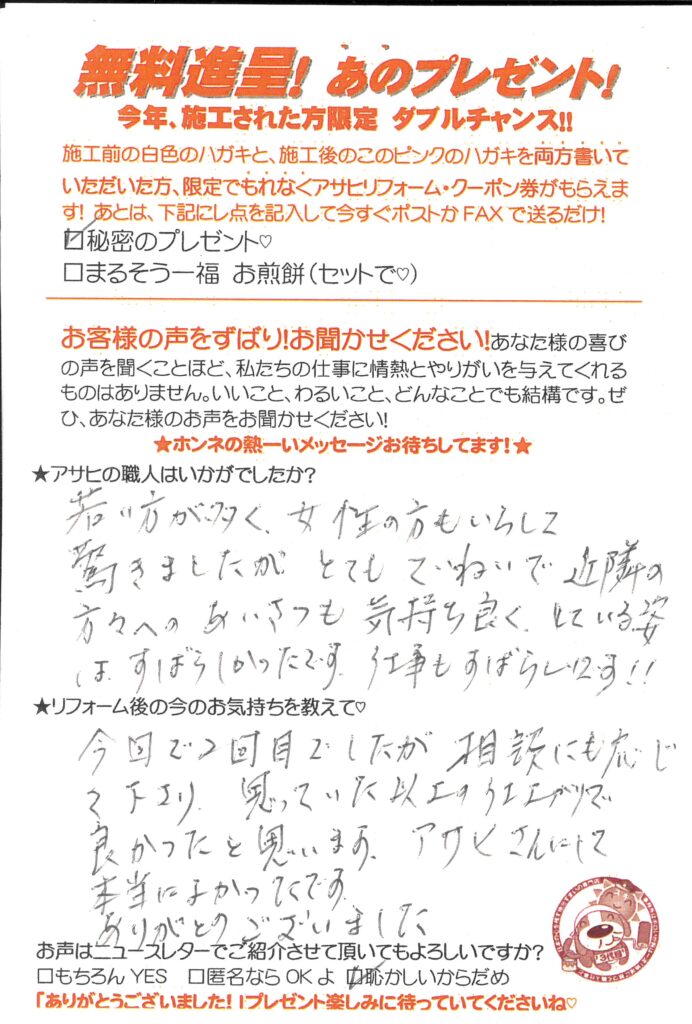 無料進呈! あのプレゼント!
今年、施工された方限定 ダブルチャンス!!
施工前の白色のハガキと、施工後のこのピンクのハガキを両方書いて
いただいた方、限定でもれなくアサヒリフォーム・クーポン券がもらえま
す! あとは、下記にレ点を記入して今すぐポストかFAXで送るだけ!
☑秘密のプレゼント♡
□まるそう一福 お煎餅(セットで♡)
お客様の声をずばり!お聞かせください!あなた様の喜び
の声を聞くことほど、私たちの仕事に情熱とやりがいを与えてくれる
ものはありません。いいこと、わるいこと、どんなことでも結構です。ぜ
ひ、あなた様のお声をお聞かせください!
★ホンネの熱ーいメッセージお待ちしてます!★
★アサヒの職人はいかがでしたか?
若い方が多く、女性の方もいらして
驚きましたが とても ていねいで 近隣の
方々への あいさつも 気持ち良く、している姿
は すばらしかったです。仕事もすばらしいです!!
★リフォーム後の今のお気持ちを教えて♡
今回で2回目でしたが 相談にも応じ
て下さり、思っていた以上の仕上がりで
良かったと思います。アサヒさんにして
本当によかったです。
ありがとうございました
お声はニュースレターでご紹介させて頂いてもよろしいですか?
□もちろんYES □匿名ならOKよ ☑恥かしいからだめ
「ありがとうございました!!プレゼント楽しみに待っていてくださいね♡
3代目